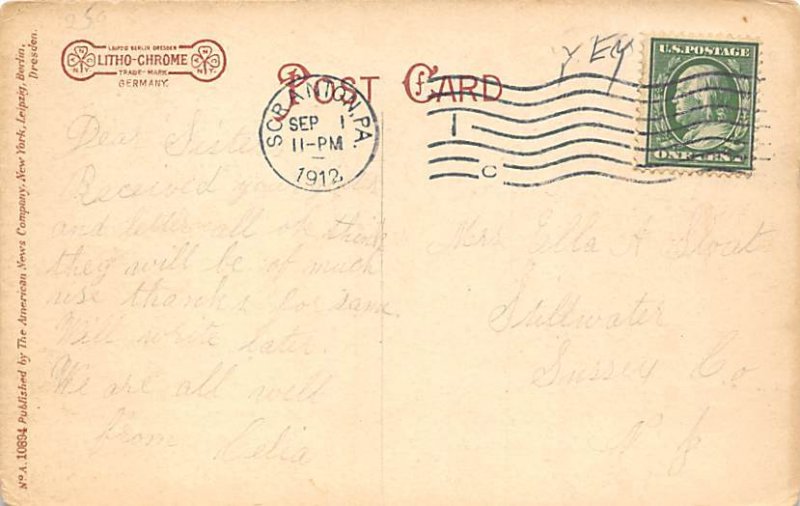 250
LEIPZIG BERLIN DRESDEN
LITHO-CHROME
TRADE-MARK
GERMANY.
POST CARD
SCRANTON, PA.
SEP 1
11-PM
1912
1
C
U.S. POSTAGE
ONE CENT
No. A. 10894 Published by The American News Company, New York, Leipzig, Berlin,
Dresden.
Dear Sister
Received your
and letter all ok think
they will be of much
use thanks for same
Will write later.
We are all well
from Celia
Mrs Ella A
Stillwater
Sussex Co
N J